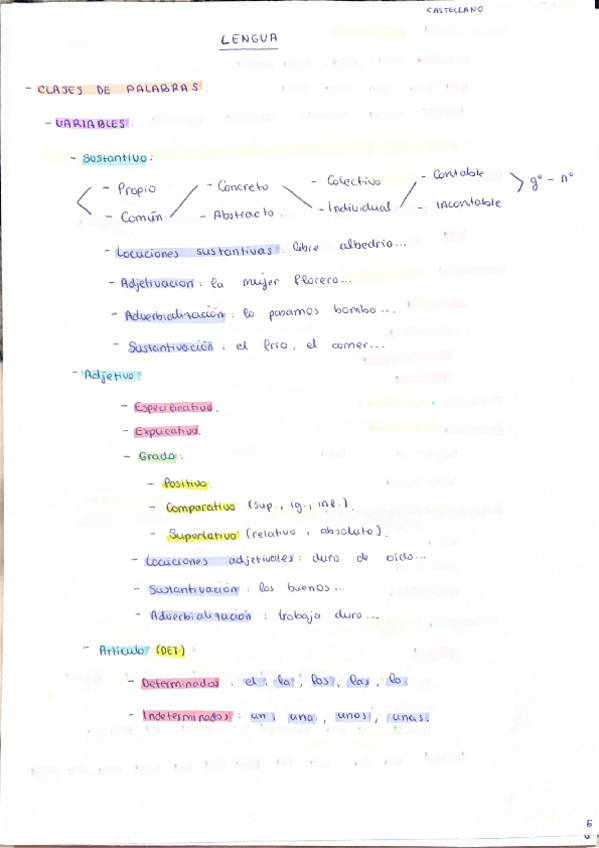 CASTELLANO
LENGUA
- CLASES DE PALABRAS:
- VARIABLES:
- Sustantivo:
- Propio - Concreto - Colectivo - Contable > gº - nº
- Común - Abstracto - Individual - Incontable
- Locuciones sustantivas: libre albedrío...
- Adjetivacion: la mujer florero...
- Adverbialización: lo pasamos bombo...
- Sustantivación: el frio, el comer...
- Adjetivo:
- Especificativo.
- Explicativo.
- Grado:
- Positivo
- Comparativo (sup., ig., inf.).
- Superlativo (relativo, absoluto).
- Locuciones adjetivales: duro de oido...
- Sustantivación: los buenos...
- Adverbialización: trabaja duro...
- Artículo (DET):
- Determinados: el, la, los, las, lo
- Indeterminados: un, una, unos, unas.